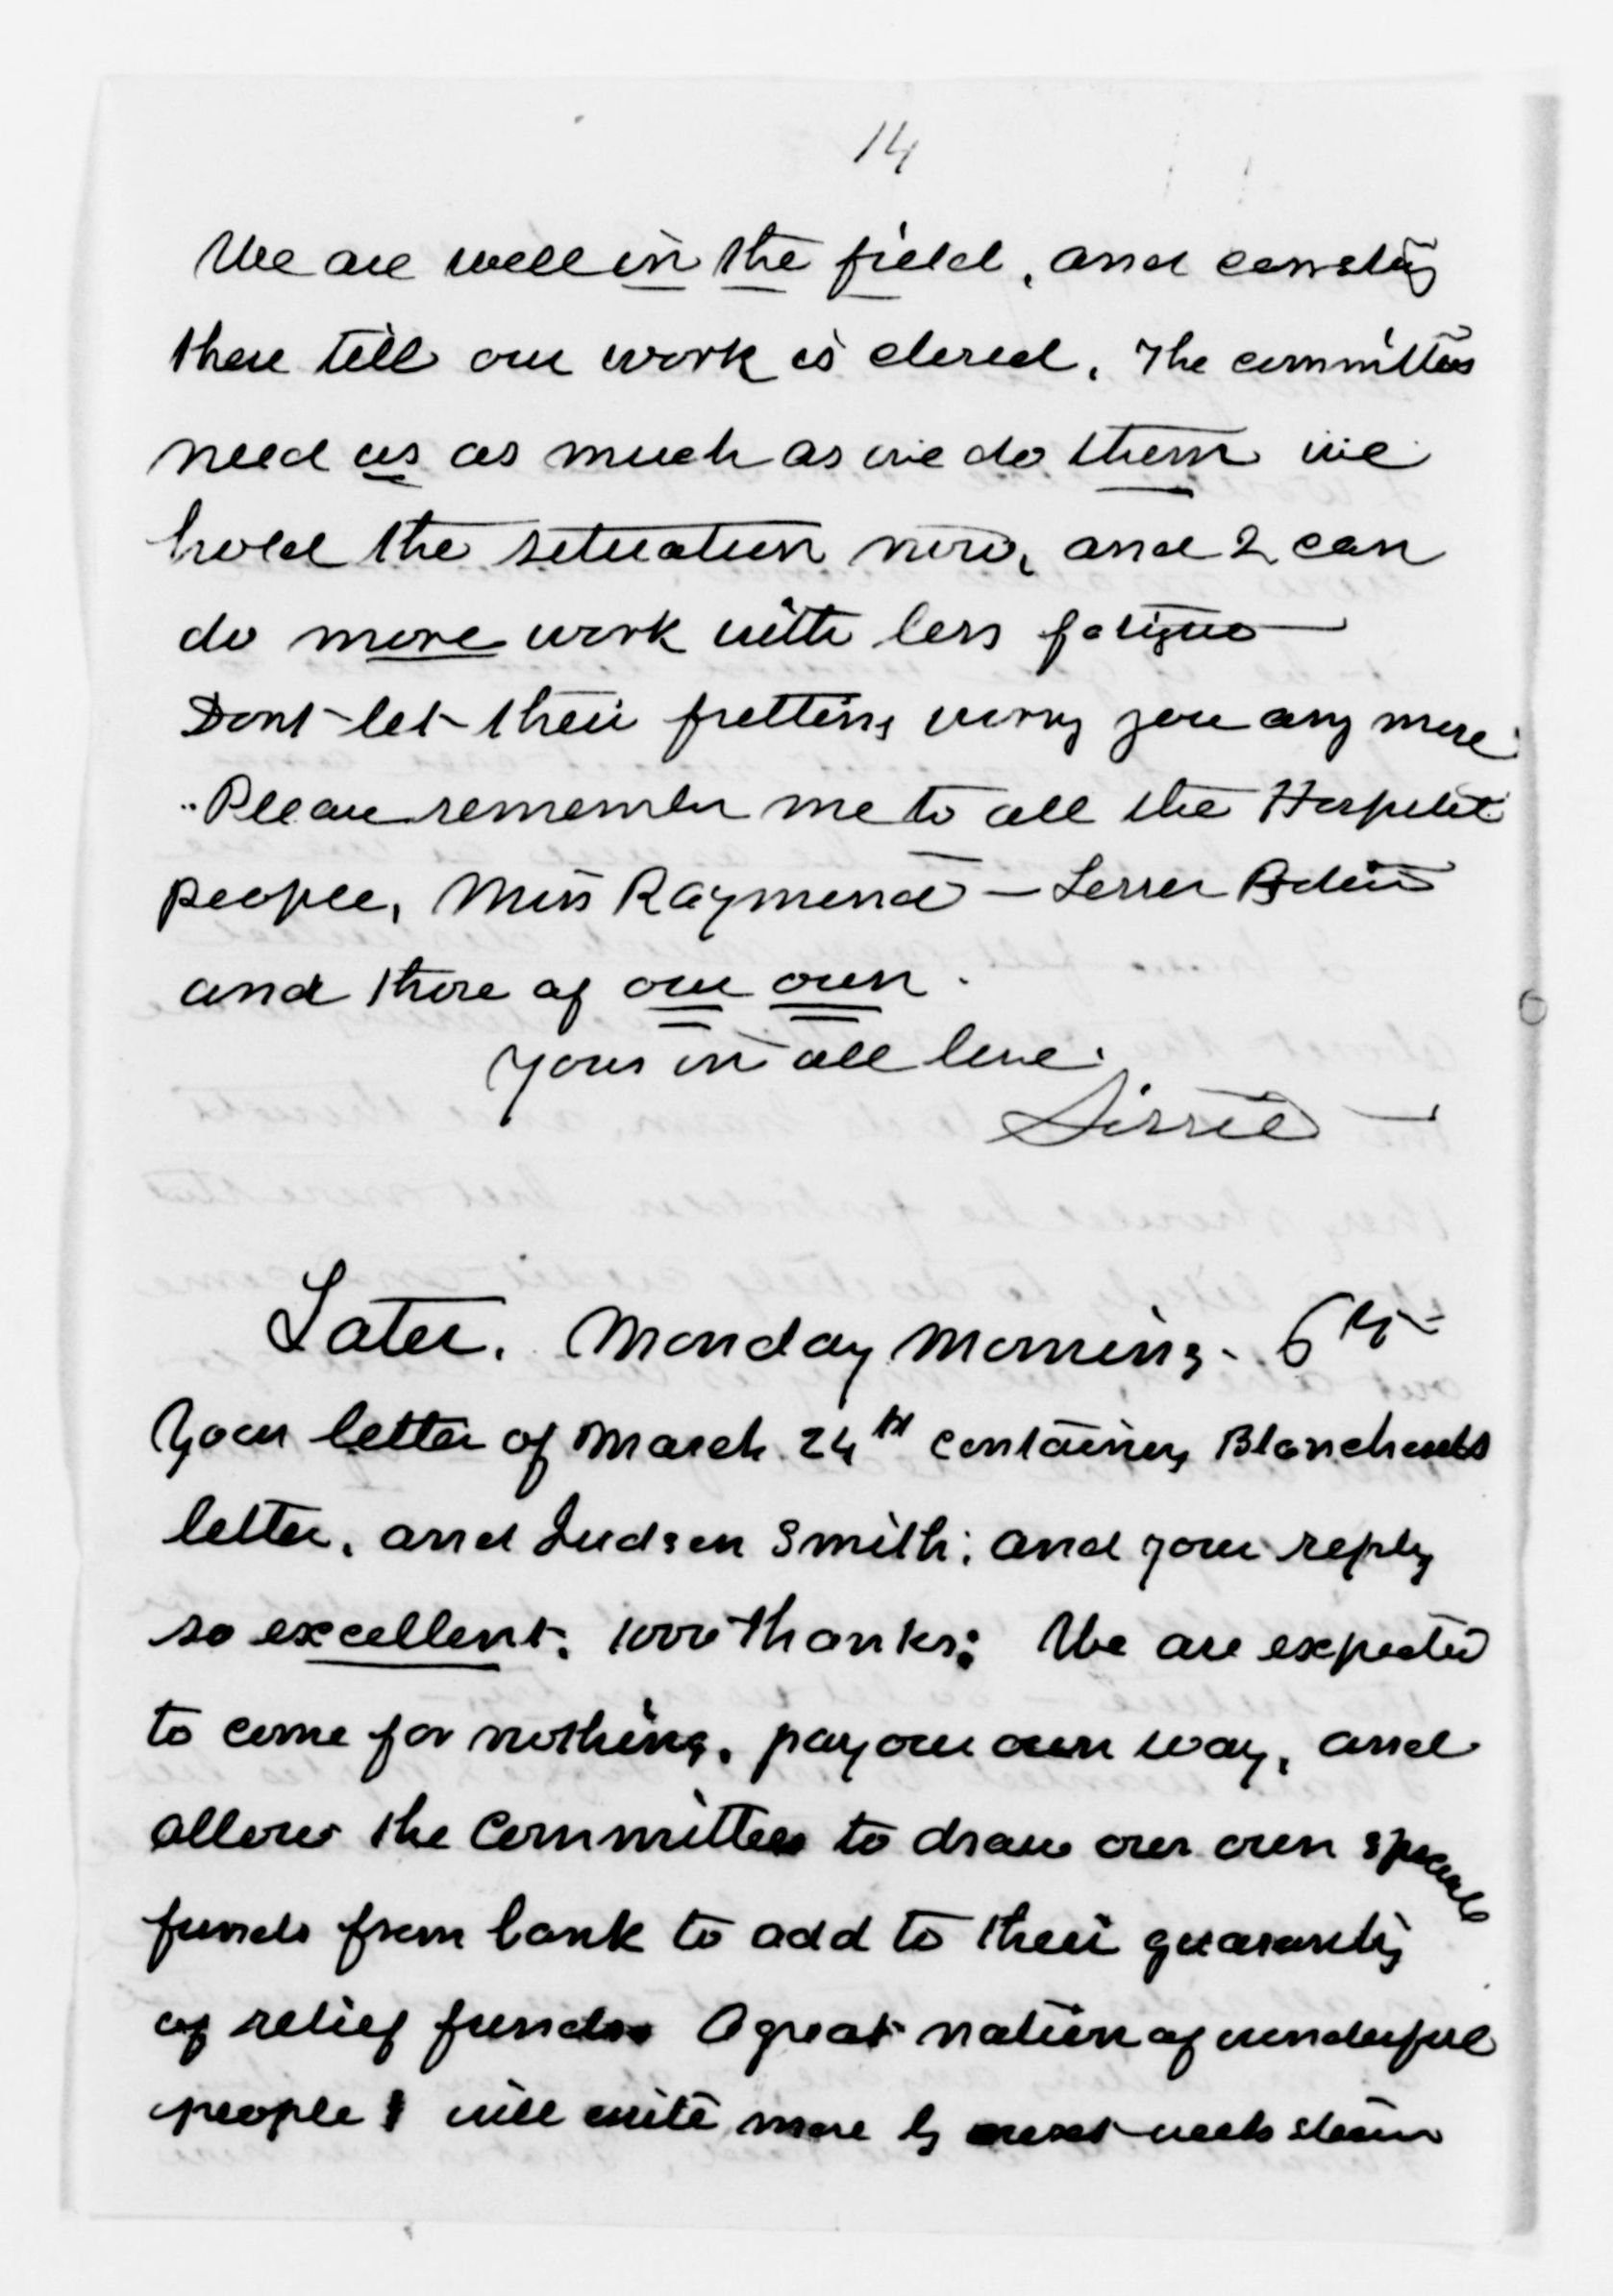 14
We are well in the field, and can stay
there till our work is closed. The committees
need us as much as we do them we
hold the situation now, and I can
do more work with less fatigue —
Dont let their fretting worry you any more
Please remember me to all the Hospital
people, Miss Raymond — Lesser
and those of our own.
Yours in all love.
Sissie —
Later. Monday Morning. 6th
Your letter of March 24th containing Blanchards
letter, and Judson Smith; and your reply
so excellent. 1000 thanks; We are expected
to come for nothing, pay our own way, and
allow the Committees to draw our own special
funds from bank to add to their guaranty
of relief funds. A great nation of wonderful
people I will write more by next weeks steam